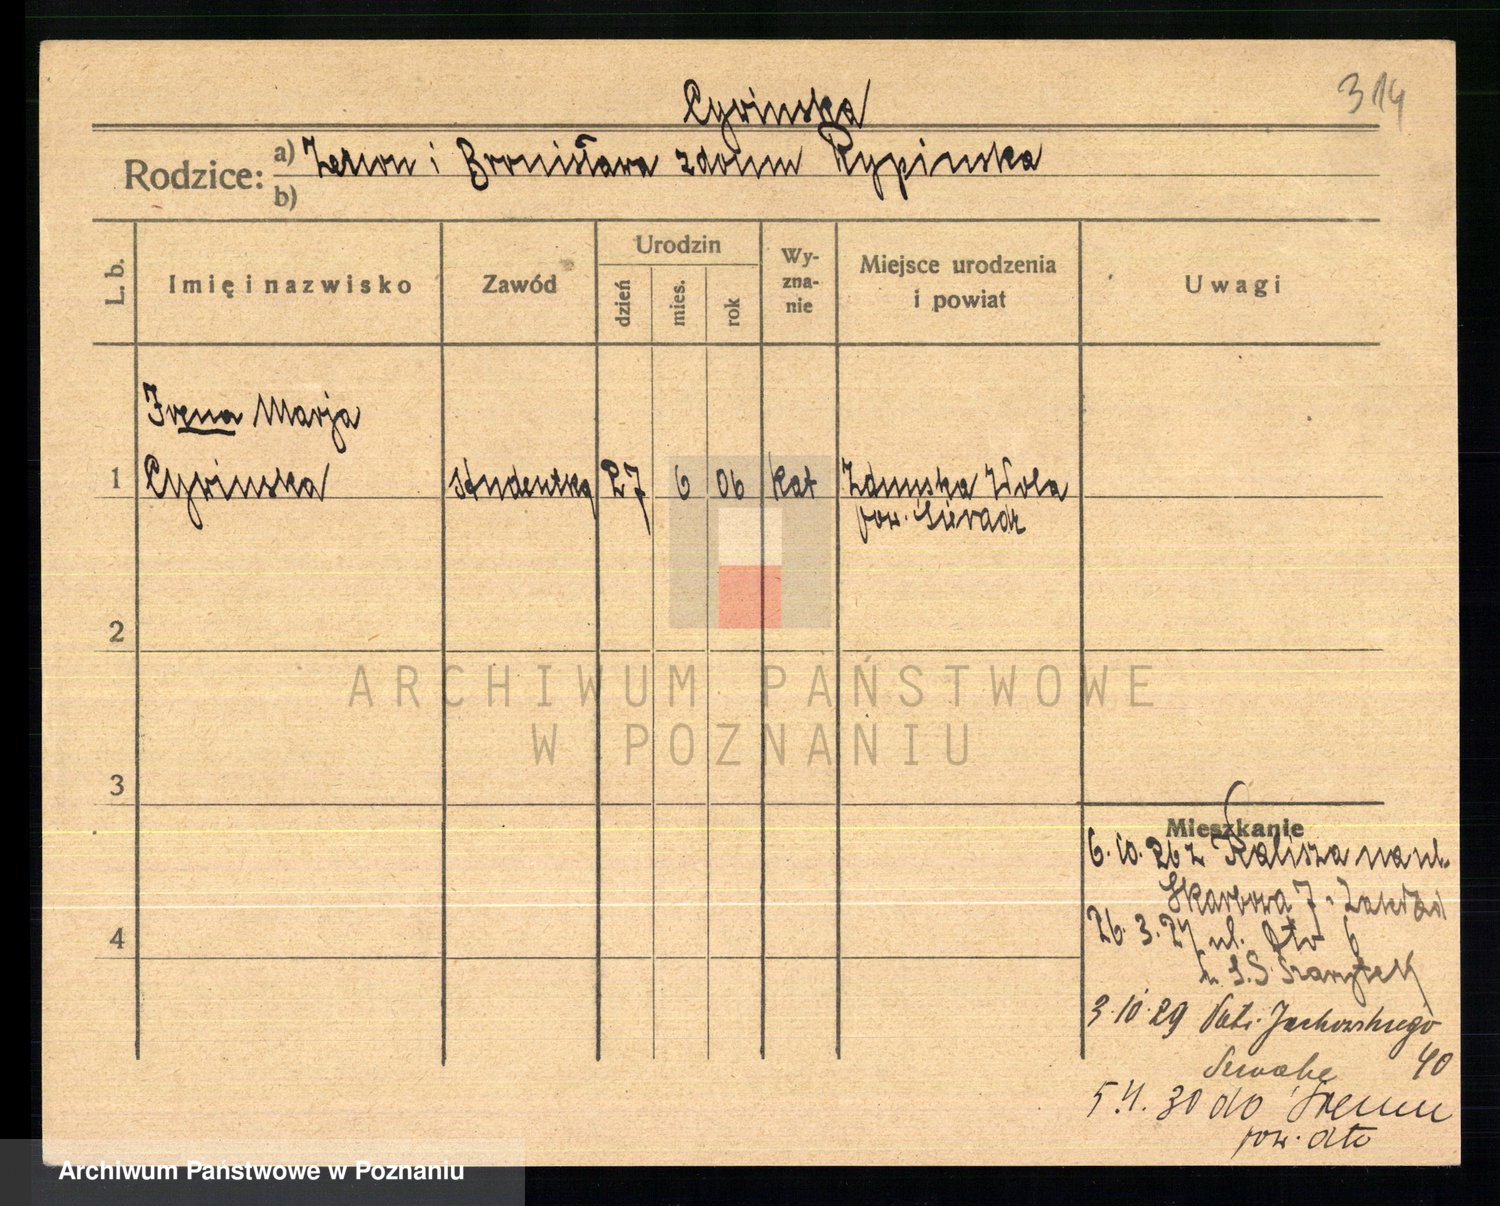 Cyrinska
314
Rodzice: a) Zenon i Bronisława z domu Rypinska
b)
L. b. Imię i nazwisko Zawód Urodzin dzień mies. rok Wy-zna-nie Miejsce urodzenia i powiat Uwagi
Irena Marja
1 Cyrinska studentka 27 6 06 kat Zdunska Wola
pow. Sieradz
2
3
4
Mieszkanie
6. 10. 26 z Kalisza na ul.
Skarbowa 7
26. 3. 27 ul. dto 6
3. 10. 29 Jackowskiego
40
30 do Śremu
pow. dto
ARCHIWUM PAŃSTWOWE
W POZNANIU
Archiwum Państwowe w Poznaniu